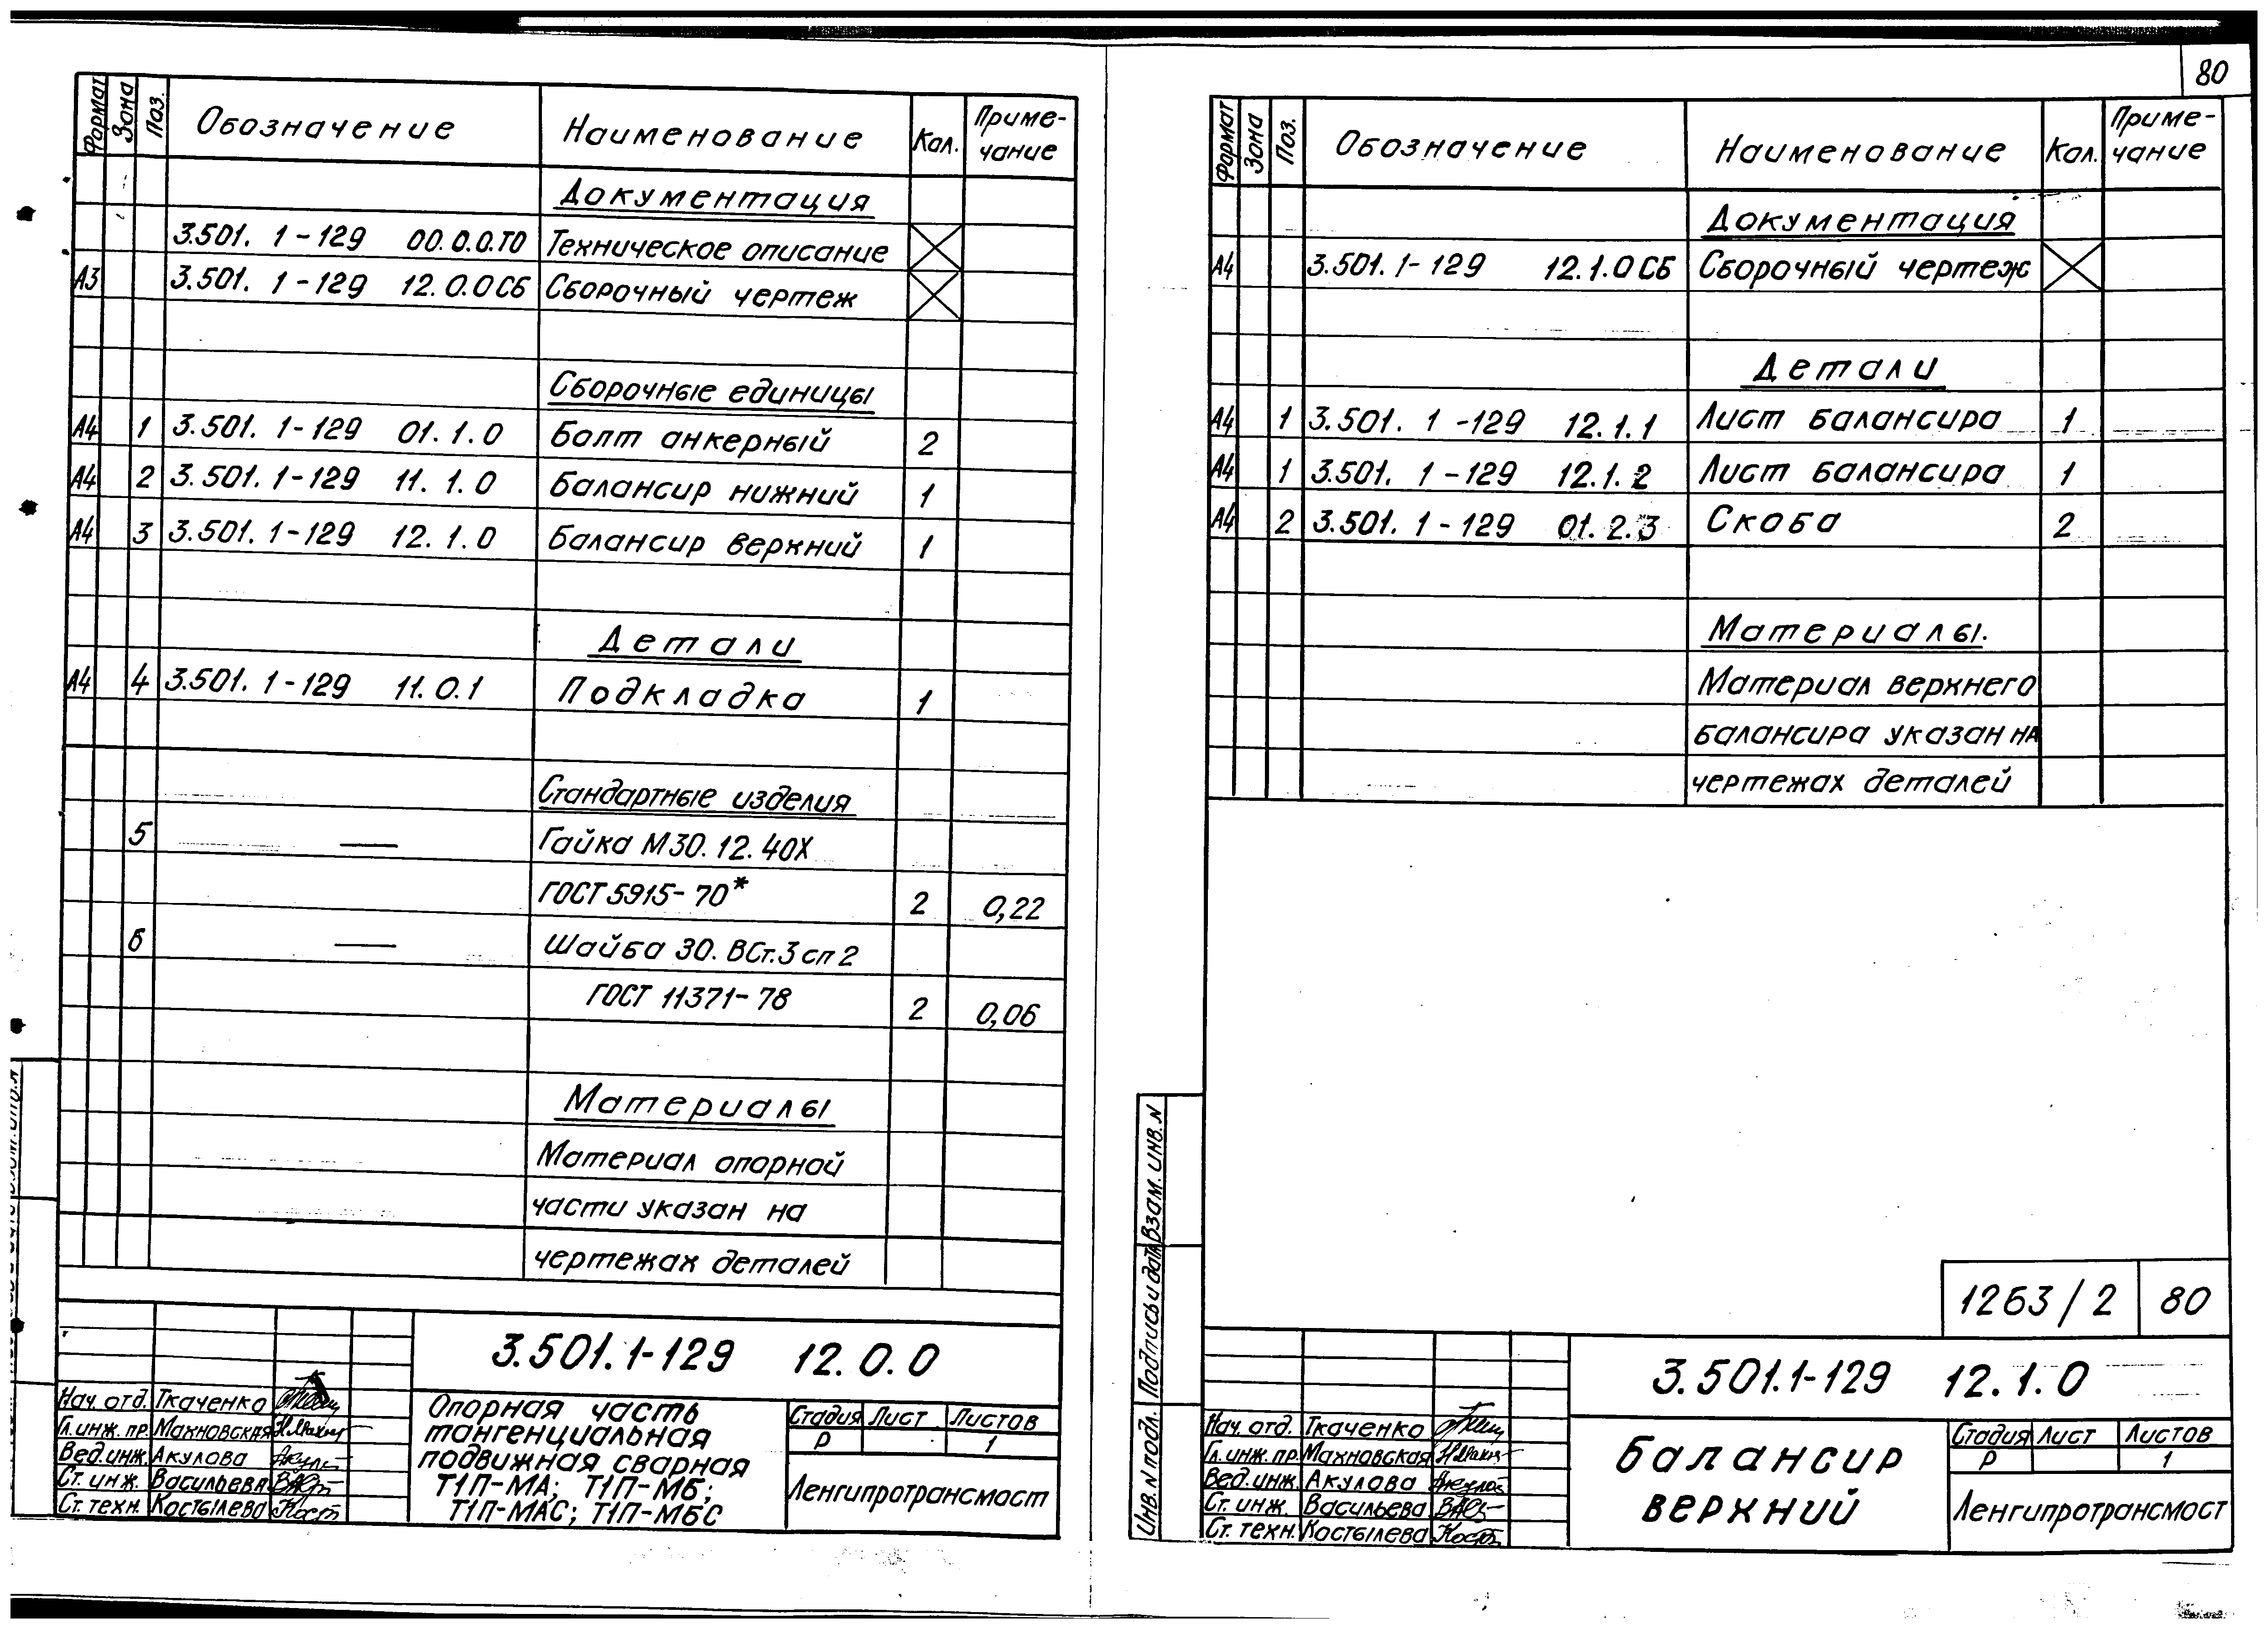 80
Формат Зона Поз. Обозначение Наименование Кол. Приме-
чание
Документация
3.501. 1-129 00.0.0.ТО Техническое описание
А3 3.501. 1-129 12.0.0СБ Сборочный чертеж
Сборочные единицы
А4 1 3.501. 1-129 01.1.0 Болт анкерный 2
А4 2 3.501. 1-129 11.1.0 Балансир нижний 1
А4 3 3.501. 1-129 12.1.0 Балансир верхний 1
Детали
А4 4 3.501. 1-129 11.0.1 Подкладка 1
Стандартные изделия
5 — Гайка М30.12.40Х
ГОСТ 5915-70* 2 0,22
6 — Шайба 30. ВСт.3сп2
ГОСТ 11371-78 2 0,06
Материалы
Материал опорной
части указан на
чертежах деталей
3.501.1-129 12.0.0
Нач. отд. Ткаченко
Гл. инж. пр. Махновская
Вед. инж. Акулова
Ст. инж. Васильева
Ст. техн. Костылева
Опорная часть
тангенциальная
подвижная сварная
Т1П-МА; Т1П-МБ;
Т1П-МАС; Т1П-МБС
Стадия Лист Листов
Р 1
Ленгипротрансмост
Формат Зона Поз. Обозначение Наименование Кол. Приме-
чание
Документация
А4 3.501. 1-129 12.1.0СБ Сборочный чертеж
Детали
А4 1 3.501. 1-129 12.1.1 Лист балансира 1
А4 1 3.501. 1-129 12.1.2 Лист балансира 1
А4 2 3.501. 1-129 01.2.3 Скоба 2
Материалы.
Материал верхнего
балансира указан на
чертежах деталей
Инв. N подл. Подпись и дата Взам. инв. N
1263/2 80
3.501.1-129 12.1.0
Нач. отд. Ткаченко
Гл. инж. пр. Махновская
Вед. инж. Акулова
Ст. инж. Васильева
Ст. техн. Костылева
Балансир
верхний
Стадия Лист Листов
Р 1
Ленгипротрансмост